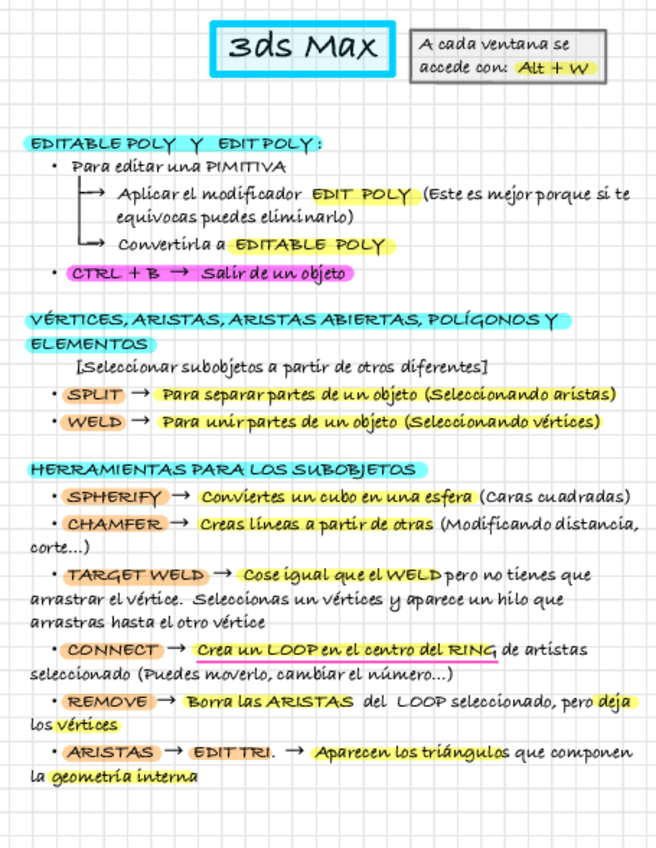 3ds Max
A cada ventana se
accede con: Alt + W
EDITABLE POLY Y EDIT POLY:
• Para editar una PIMITIVA
→ Aplicar el modificador EDIT POLY (Este es mejor porque si te
equivocas puedes eliminarlo)
→ Convertirla a EDITABLE POLY
• CTRL + B → Salir de un objeto
VÉRTICES, ARISTAS, ARISTAS ABIERTAS, POLÍGONOS Y
ELEMENTOS
[Seleccionar subobjetos a partir de otros diferentes]
• SPLIT → Para separar partes de un objeto (Seleccionando aristas)
• WELD → Para unir partes de un objeto (Seleccionando vértices)
HERRAMIENTAS PARA LOS SUBOBJETOS
• SPHERIFY → Conviertes un cubo en una esfera (Caras cuadradas)
• CHAMFER → Creas líneas a partir de otras (Modificando distancia,
corte...)
• TARGET WELD → Cose igual que el WELD pero no tienes que
arrastrar el vértice. Seleccionas un vértices y aparece un hilo que
arrastras hasta el otro vértice
• CONNECT → Crea un LOOP en el centro del RING de artistas
seleccionado (Puedes moverlo, cambiar el número...)
• REMOVE → Borra las ARISTAS del LOOP seleccionado, pero deja
los vértices
• ARISTAS → EDIT TRI. → Aparecen los triángulos que componen
la geometría interna